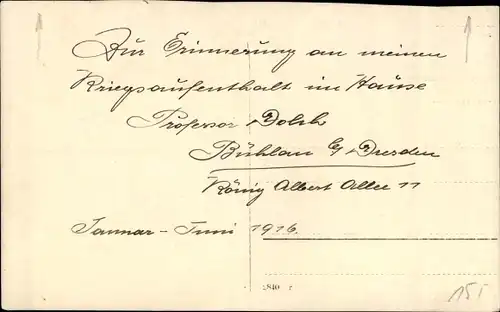 Zur Erinnerung an meinen
Kriegsaufenthalt im Hause
Professor Dolch
Bühlau b/ Dresden
König Albert Allee 11
Januar - Juni 1916.
151